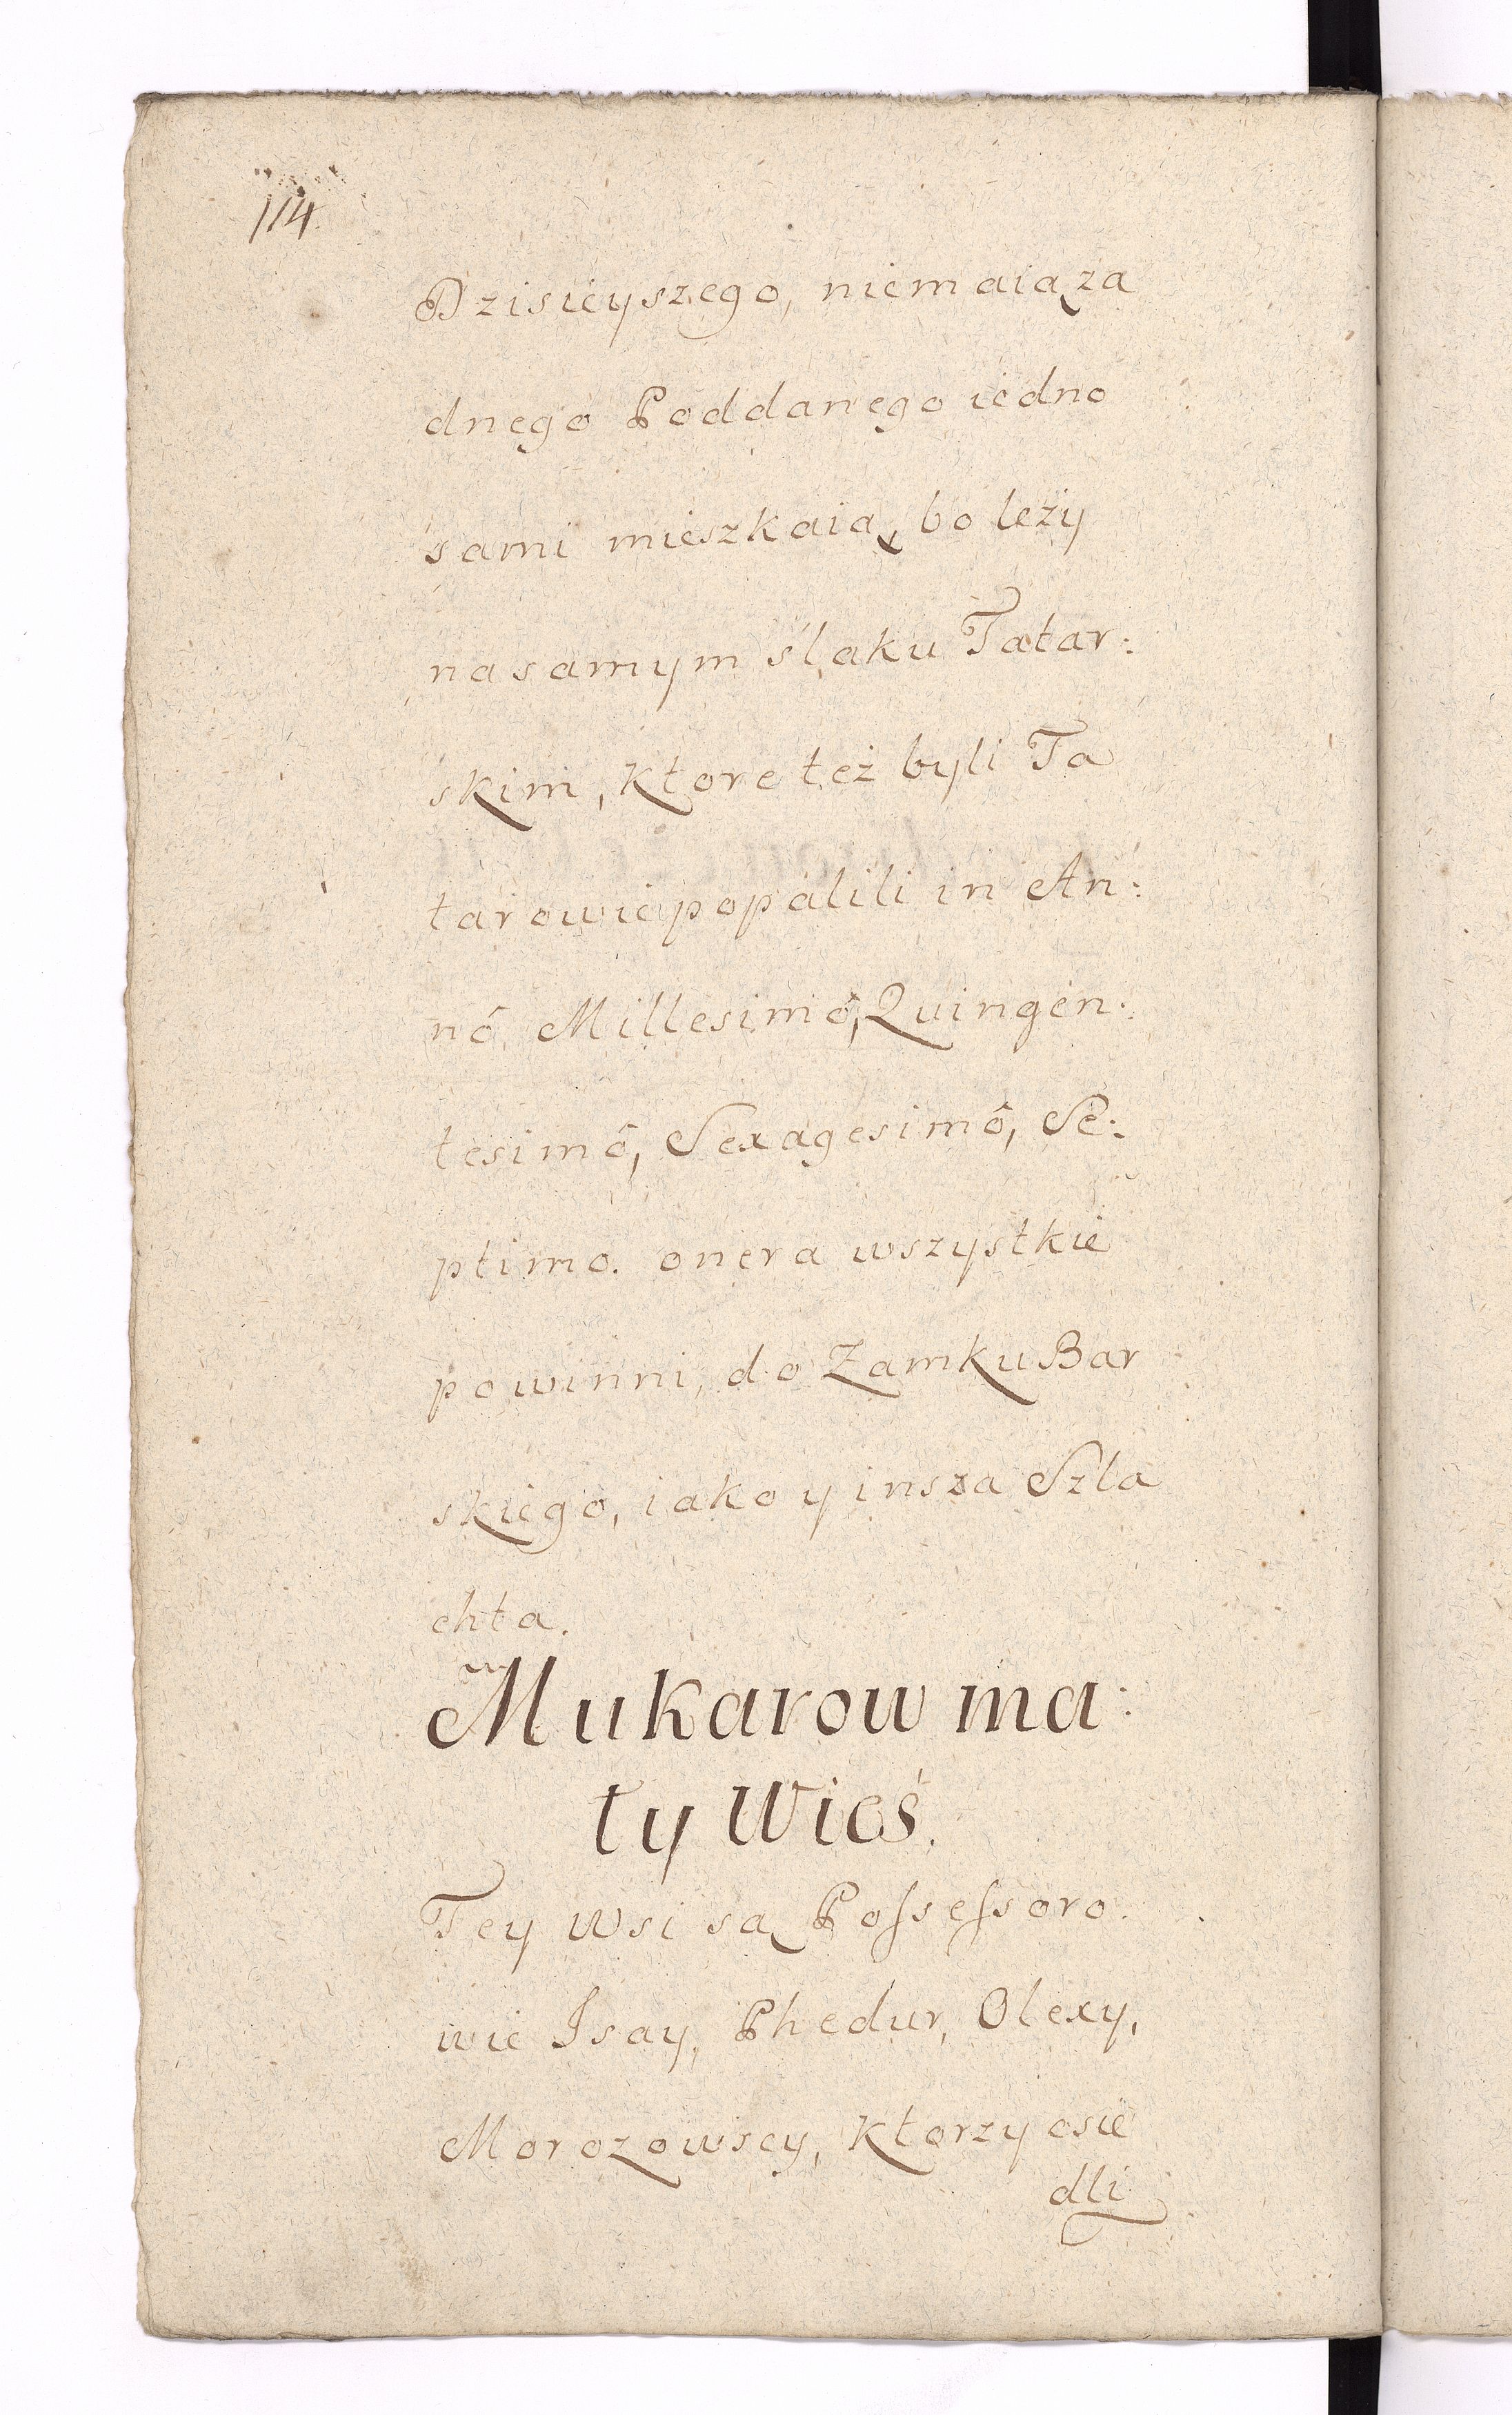 114.
Dzisieyszego, niemaią za
dnego Poddanego iedno
sami mieszkaią, bo leży
na samym ślaku Tatar:
skim, ktore też byli Ta
tarowie popalili in An:
nô Millesimô, Quingen:
tesimô, Sexagesimô, Se:
ptimo. onera wszystkie
powinni, do Zamku Bar
skiego, iako y insza Szla
chta.
Mukarow ma:
ły Wieś.
Tey wsi są Possessoro.
wie Isay, Phedur, Olexy,
Morozowscy, ktorzy osie
dli